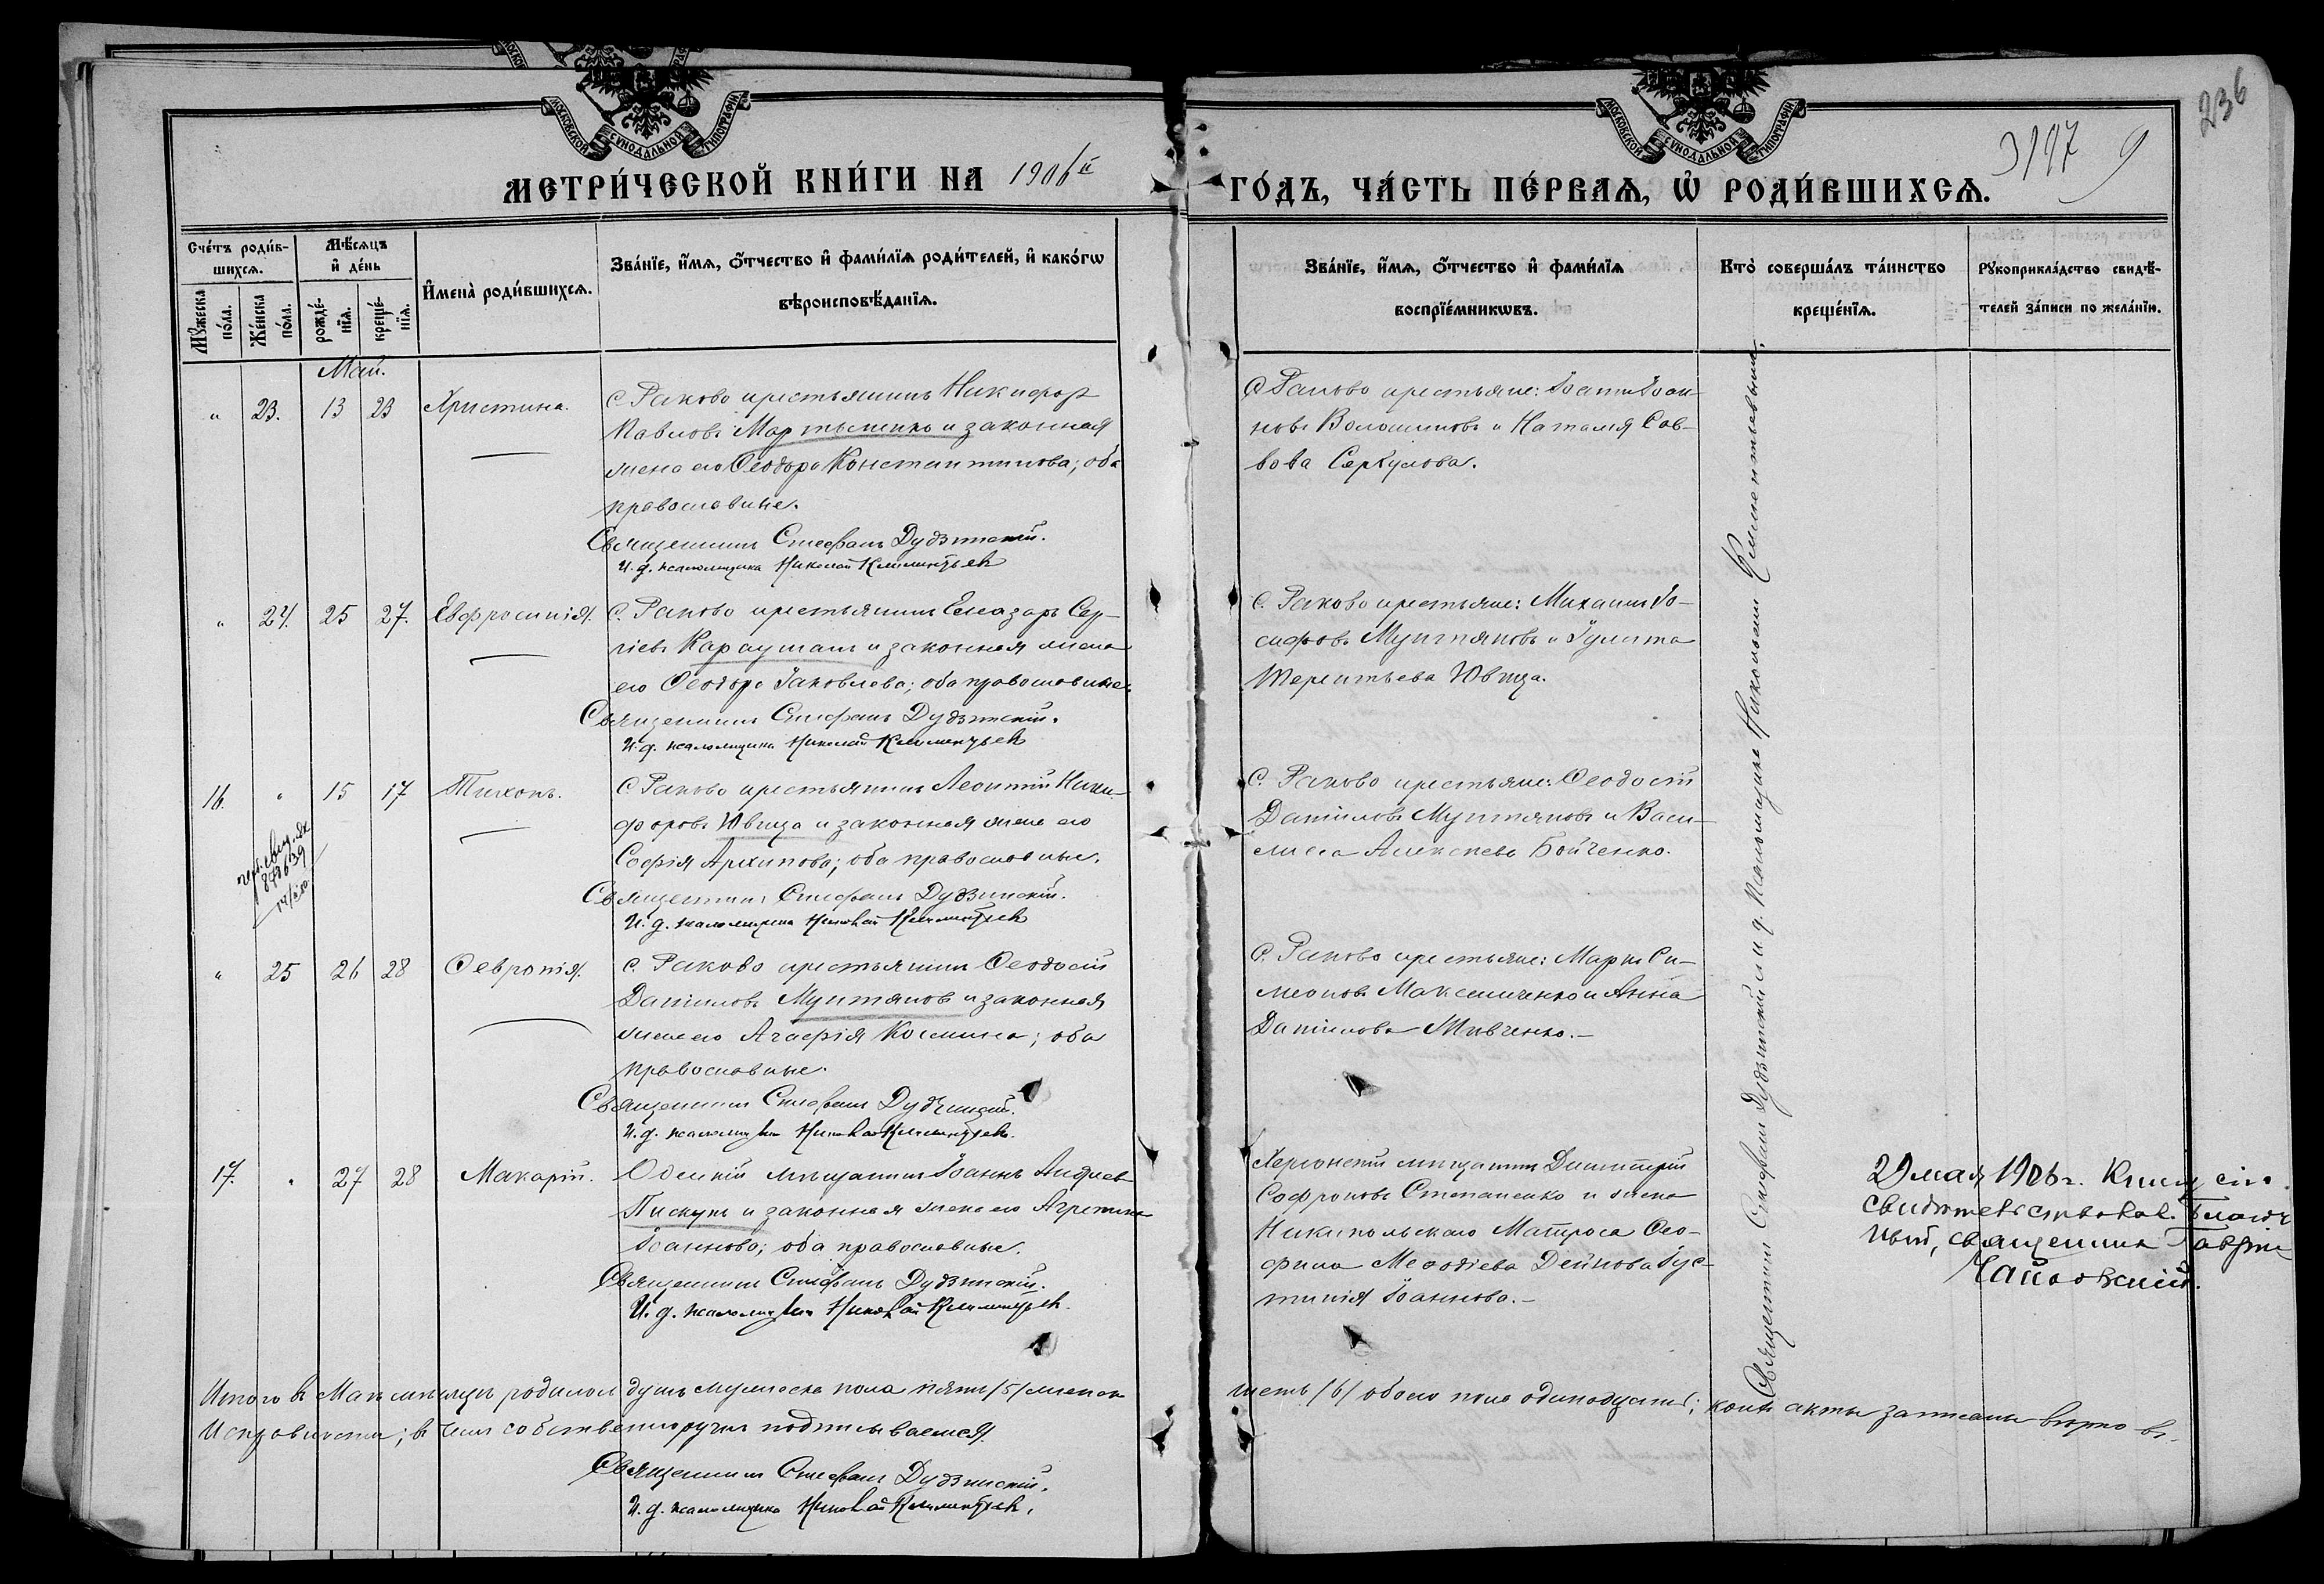 МОСКОВСКОЙ СУНОДАЛЬНОЙ ТИПОГРАФІИ
МОСКОВСКОЙ СУНОДАЛЬНОЙ ТИПОГРАФІИ
236
3197 9
МЕТРИ́ЧЕСКОЙ КНИ́ГИ НА 1906й
ГО́ДЪ, ЧА́СТЬ ПЕ́РВАѦ, Ѡ҆ РОДИ́ВШИХСѦ.
Сче́тъ роди́в-
шихсѧ.
Мꙋ́жеска по́ла.
Же́нска по́ла.
Мѣ́сѧцъ
и҆ де́нь
рожде́-
нїѧ.
креще́-
нїѧ.
И҆мена̀ роди́вшихсѧ.
Зва́нїе, и҆́мѧ, ѻ҆́тчество и҆ фами́лїѧ роди́телей, и҆ како́гѡ
вѣроисповѣ́данїѧ.
Зва́нїе, и҆́мѧ, ѻ҆́тчество и҆ фами́лїѧ
воспрїе́мникѡвъ.
Кто̀ соверша́лъ та́инство
креще́нїѧ.
Рꙋкоприкла́дство свидѣ́-
телей за́писи по жела́нїю.
Май.
" 23. 13 23 Христина.
С. Раково крестьянинъ Никифоръ
Павловъ Мартыненко и законная
жена его Ѳеодора Константинова; оба
православные.
Священникъ Стефанъ Дудзинскій.
И. д. псаломщика Николай Климентьевъ
С. Раково крестьяне: Іоаннъ Іоан-
новъ Волошиновъ и Наталія Сав-
вова Серкулова.
" 24. 25 27. Евфросинія.
С. Раково крестьянинъ Елеазаръ Сер-
гіевъ Караушанъ и законная жена
его Ѳеодора Іаковлева; оба православные.
Священникъ Стефанъ Дудзинскій.
И. д. псаломщика Николай Климентьевъ
С. Раково крестьяне: Михаилъ Іо-
сифовъ Мунтяновъ и Іулита
Терентьева Ювица.
16. " 15 17 Тихонъ.
С. Раково крестьянинъ Леонтій Ники-
форовъ Ювица и законная жена его
Софія Архипова; оба православные.
Священникъ Стефанъ Дудзинскій.
И. д. псаломщика Николай Климентьевъ
С. Раково крестьяне: Ѳеодосій
Даніиловъ Мунтяновъ и Васи-
лиса Алексѣева Бойченко.
" 25 26 28 Ѳевронія.
С. Раково крестьянинъ Ѳеодосій
Даніиловъ Мунтяновъ и законная
жена его Агафія Космина; оба
православные.
Священникъ Стефанъ Дудзинскій.
И. д. псаломщика Николай Климентьевъ.
С. Раково крестьяне: Маркъ Си-
меоновъ Максименко и Анна
Даніилова Мивченко.—
17. " 27 28 Макарій.
Одесскій мѣщанинъ Іоаннъ Андреевъ
Пискунъ и законная жена его Агрипина
Іоаннова; оба православные.
Священникъ Стефанъ Дудзинскій.
И. д. псаломщика Николай Климентьевъ.
Херсонскій мѣщанинъ Димитрій
Софроновъ Степаненко и жена
Никипольскаго Матроса Ѳео-
фила Меѳодіева Дейнова Іус-
тинія Іоаннова.—
Священникъ Стефанъ Дудзинскій и и. д. псаломщика Николай Климентьевъ.
29 мая 1906 г. Книгу сію
свидѣтельствовалъ Благоч
ный, священникъ
Итого въ Маѣ мѣсяцѣ родилось душъ мужеска пола пять /5/ женска
шесть /6/ обоего пола одинадцать; коихъ акты записаны вѣрно въ
Исправности; въ чемъ собственноручно подписываемся.
Священникъ Стефанъ Дудзинскій.
И. д. псаломщика Николай Климентьевъ.